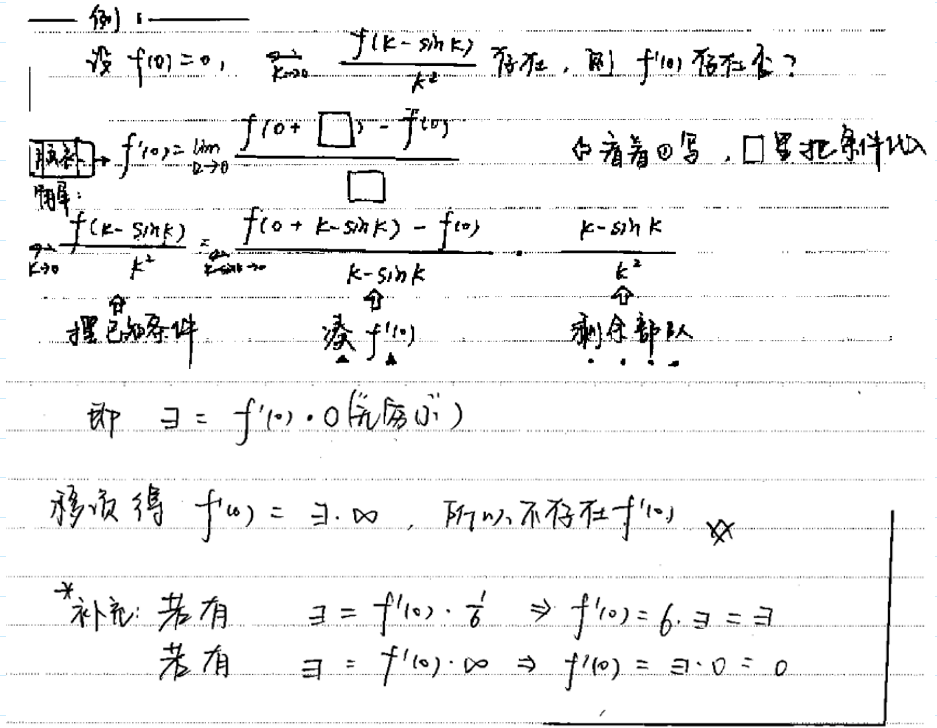 例1:
设 f(0)=0, lim k→0 f(k-sink)/k² 存在, 则 f'(0) 存在否?
f'(0)= lim □→0 (f(0+□)-f(0))/□ 着 写, □里把条件代入
解:
lim k→0 f(k-sink)/k² = lim k-sink→0 (f(0+k-sink)-f(0))/(k-sink) · (k-sink)/k²
摆已知条件 凑 f'(0) 剩余部队
即 ∃ = f'(0)·0(“无穷小”)
移项得 f'(0) = ∃·∞, 所以不存在f'(0)
*补充: 若有 ∃ = f'(0)·1/6 ⇒ f'(0)=6·∃=∃
若有 ∃ = f'(0)·∞ ⇒ f'(0) = ∃·0 = 0